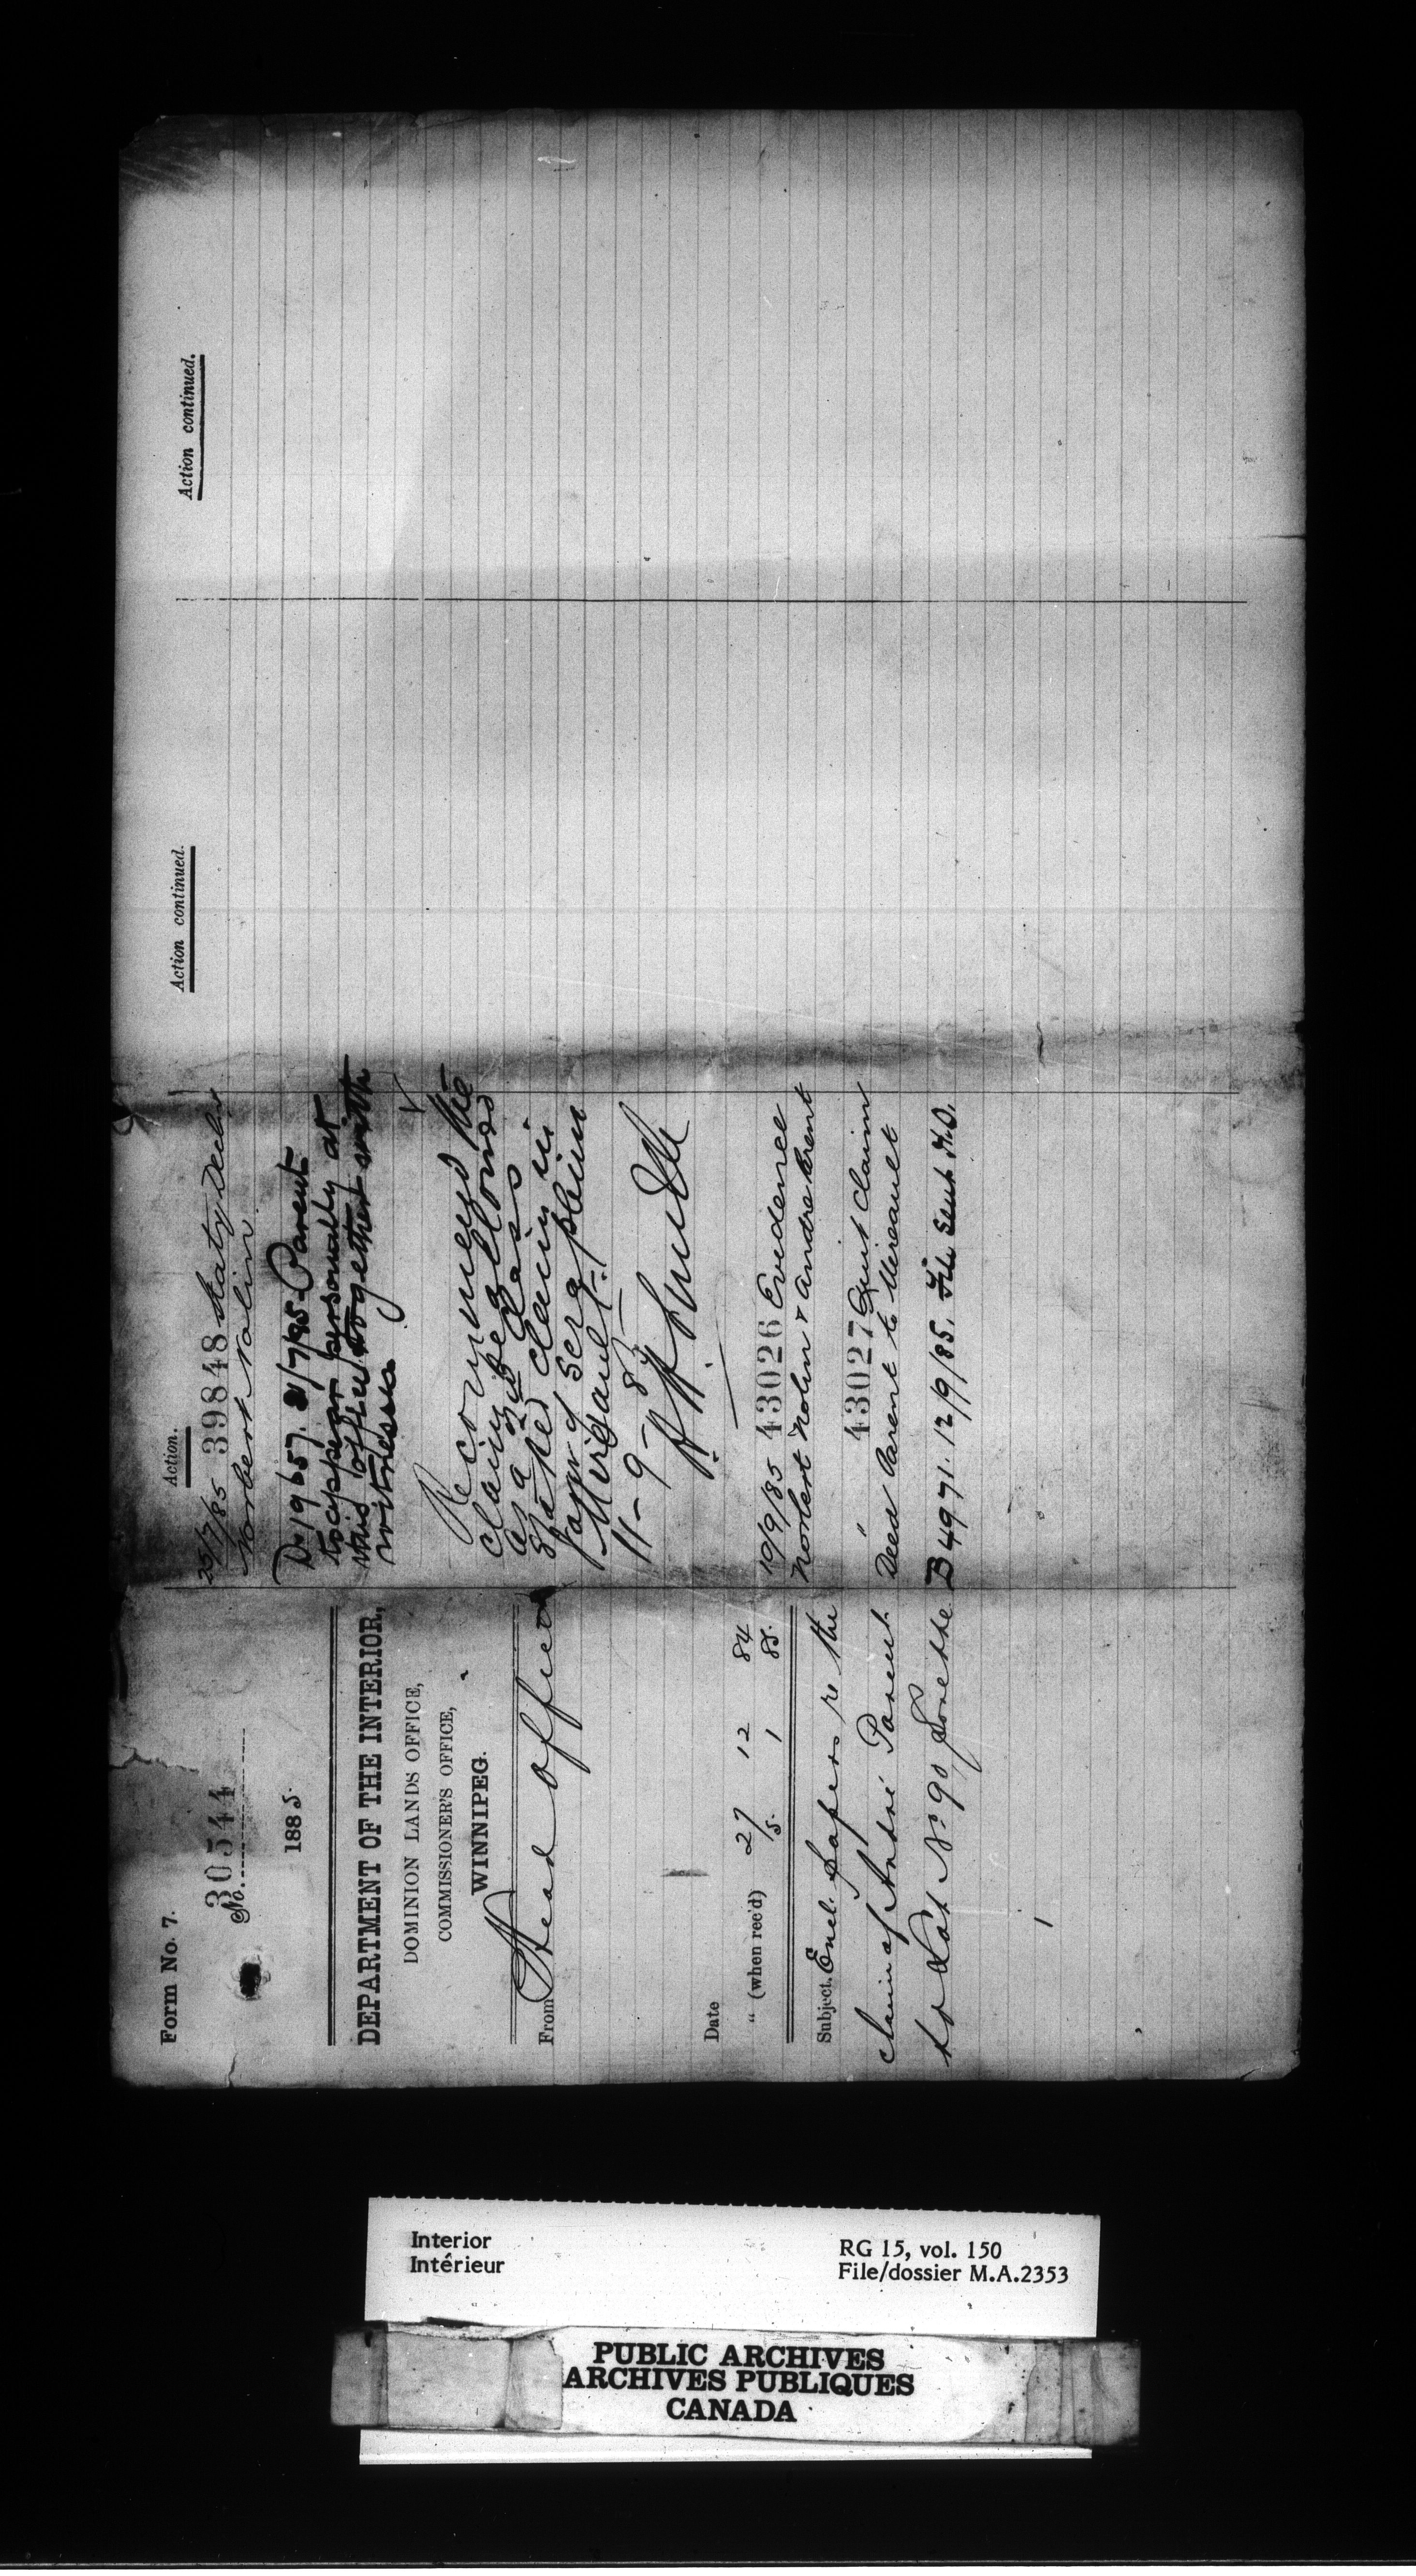 Form No. 7.
30544
No.
1885.
DEPARTMENT OF THE INTERIOR,
DOMINION LANDS OFFICE,
COMMISSIONER'S OFFICE,
WINNIPEG.
From Head Office
Date 27 12 84
" (when rec'd) 5 1 85.
Subject. Encl. papers re the
claim of André Parent
to Lot No 90 Lorette
Action.
25/7/85 39848 Staty Decln
Norbert Nolin
D. 19657. 31/7/85. Parent
to appear personally at
this office together with
witnesses
Recommend the
claim be allowed
as a 3rd class
Staked claim in
favor of Seraphim
Mireault.
11-9-85
A. H.
10/9/85 43026 Evidence
Norbert Nolin & Andre Parent
" 43027 Quit Claim
Deed Parent to Mireault
B 4971. 12/9/85. File sent H.O.
Action continued.
Action continued.
Interior
Intérieur
RG 15, vol. 150
File/dossier M.A.2353
PUBLIC ARCHIVES
ARCHIVES PUBLIQUES
CANADA